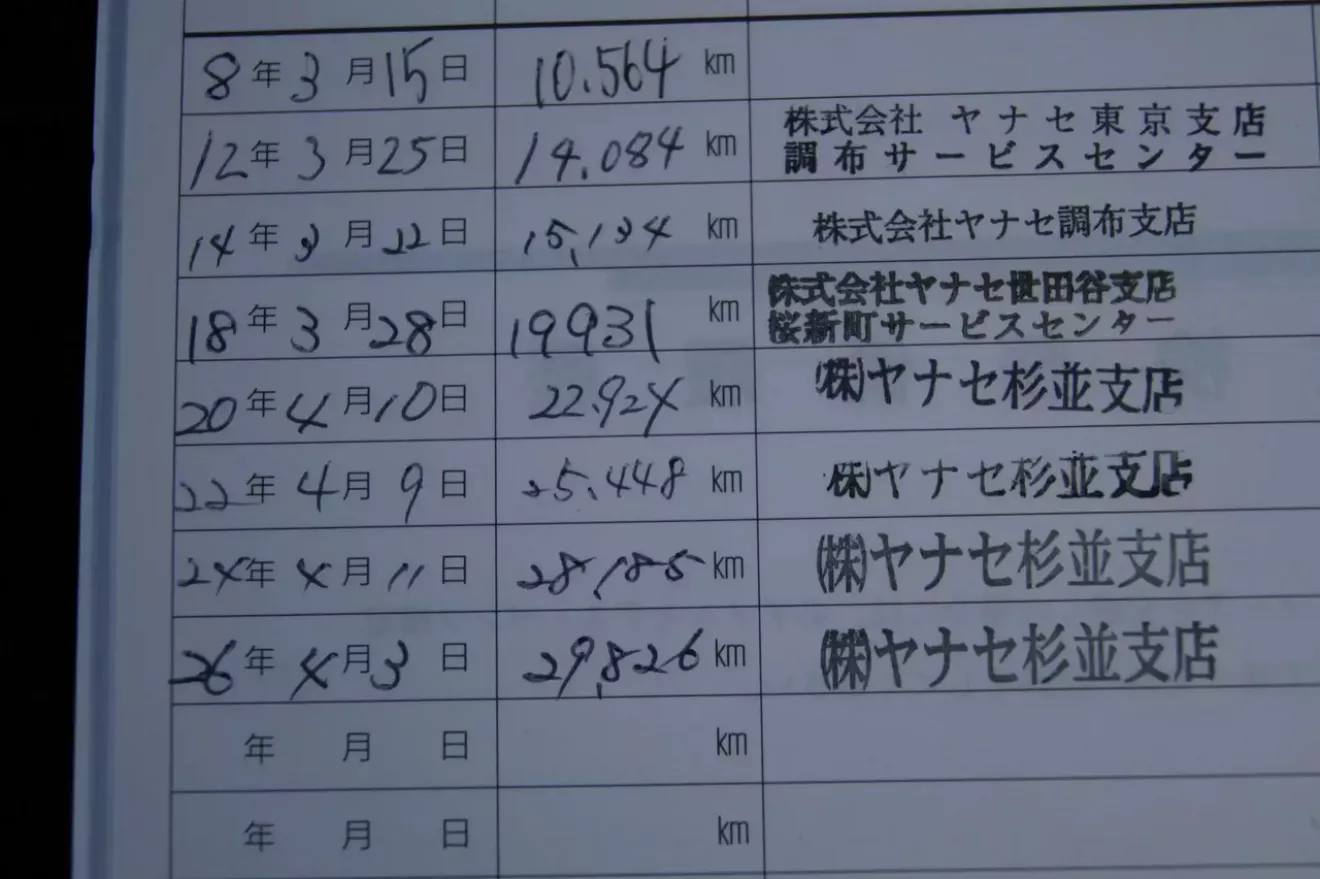 8年3月15日 10.564 km
12年3月25日 14.084 km 株式会社 ヤナセ東京支店
調布サービスセンター
14年3月22日 15,134 km 株式会社ヤナセ調布支店
18年3月28日 19931 km 株式会社ヤナセ世田谷支店
桜新町サービスセンター
20年4月10日 22.924 km (株)ヤナセ杉並支店
22年4月9日 25.448 km (株)ヤナセ杉並支店
24年4月11日 28,185 km (株)ヤナセ杉並支店
26年4月3日 29,826 km (株)ヤナセ杉並支店
年 月 日 km
年 月 日 km